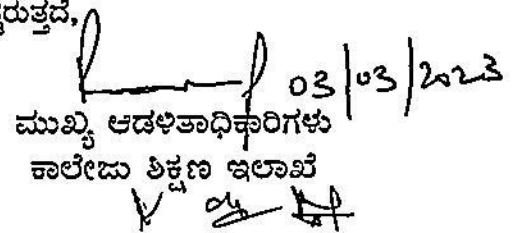 03/03/2023
ಮುಖ್ಯ ಆಡಳಿತಾಧಿಕಾರಿಗಳು
ಕಾಲೇಜು ಶಿಕ್ಷಣ ಇಲಾಖೆ